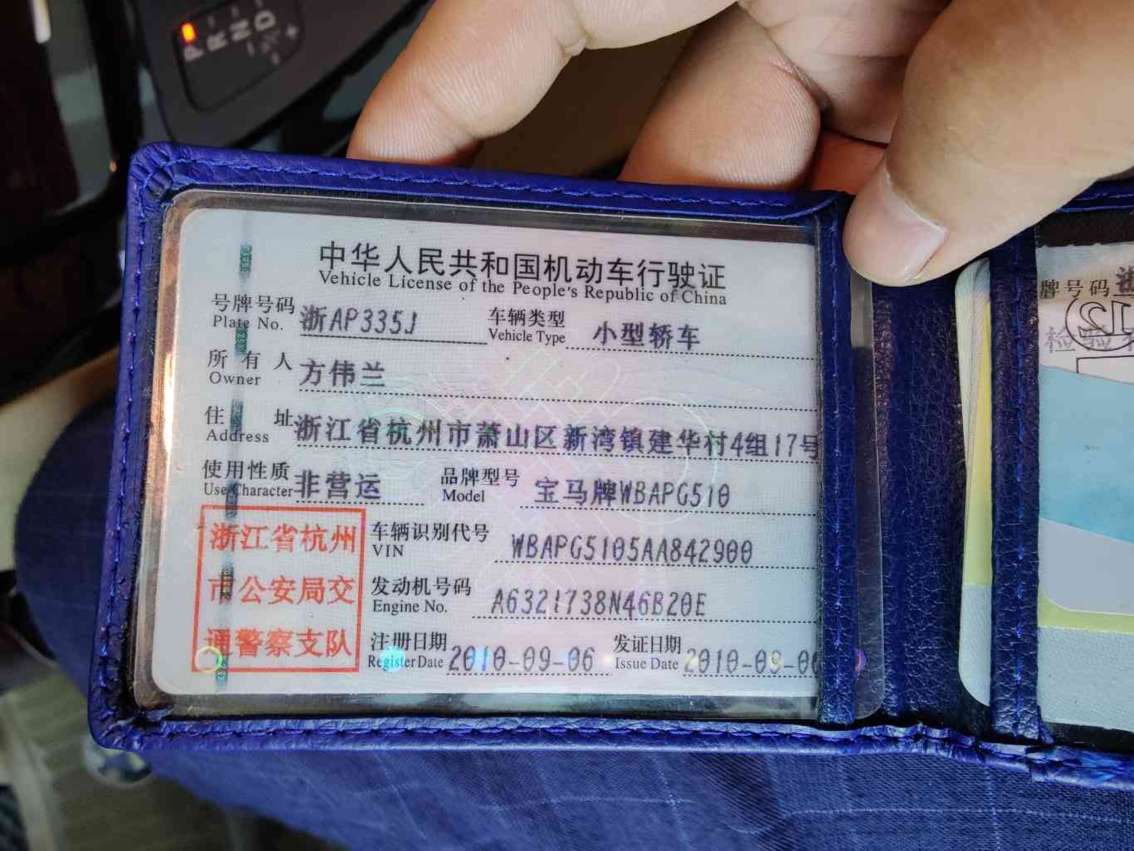 P
R
N
D
中华人民共和国机动车行驶证
Vehicle License of the People's Republic of China
号牌号码 浙AP335J 车辆类型 小型轿车
Plate No. Vehicle Type
所有人 方伟兰
Owner
住址 浙江省杭州市萧山区新湾镇建华村4组17号
Address
使用性质 非营运 品牌型号 宝马牌WBAPG510
Use Character Model
浙江省杭州
市公安局交
通警察支队
车辆识别代号 WBAPG5105AA842900
VIN
发动机号码 A6321738N46B20E
Engine No.
注册日期 2010-09-06 发证日期 2010-09-0
Register Date Issue Date
牌号码
检验